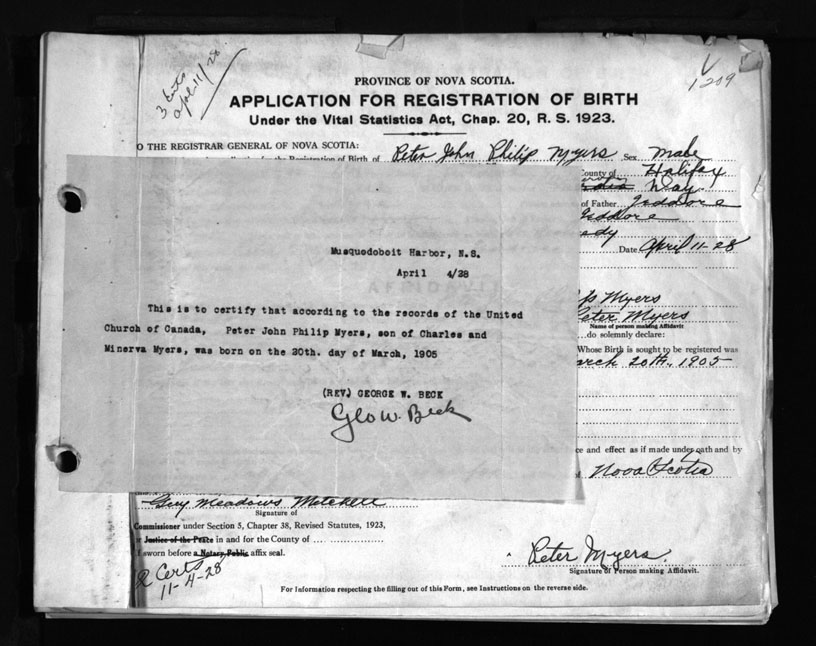 3 Certs
Apl. 11/28.
1209
PROVINCE OF NOVA SCOTIA.
APPLICATION FOR REGISTRATION OF BIRTH
Under the Vital Statistics Act, Chap. 20, R. S. 1923.
O THE REGISTRAR GENERAL OF NOVA SCOTIA:
for the Registration of Birth of Peter John Philip Myers Sex Male
County of Halifax
Day
of Father Isidore
Isidore
Date April 11-28
Musquodoboit Harbor, N.S.
April 4/28
AFFIDAVIT
This is to certify that according to the records of the United
Church of Canada, Peter John Philip Myers, son of Charles and
Minerva Myers, was born on the 20th. day of March, 1905
(REV.) GEORGE W. BECK
Geo W. Beck
Myers
Peter Myers
Name of person making Affidavit
do solemnly declare:
Whose Birth is sought to be registered was
arch 20th, 1905
ce and effect as if made under oath and by
Nova Scotia
Guy Meadows Mitchell
Signature of
Commissioner under Section 5, Chapter 38, Revised Statutes, 1923,
r Justice of the Peace in and for the County of
f sworn before a Notary Public affix seal.
2 Certs
11-4-28
Peter Myers.
Signature of Person making Affidavit.
For Information respecting the filling out of this Form, see Instructions on the reverse side.